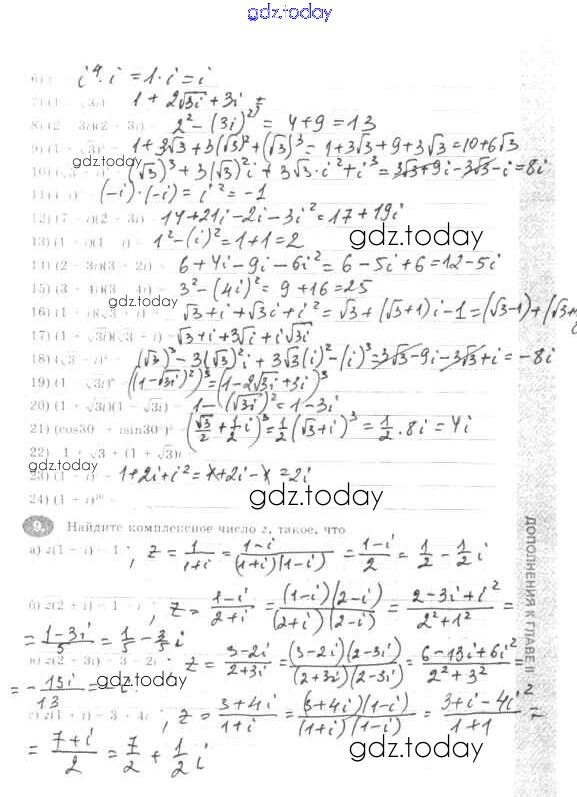 gdz.today
6) i⁴·i = 1·i = i
7) (1 √3i) 1 + 2√3i + 3i =
8) (2 3i)(2 3i) 2² − (3i)² = 4 + 9 = 13
9) (1 √3)³ 1 + 3√3 + 3(√3)² + (√3)³ = 1 + 3√3 + 9 + 3√3 = 10 + 6√3
10) (√3)³ + 3(√3)²i + 3√3·i² + i³ = 3√3 + 9i − 3√3 − i = 8i
gdz.today
11) (−i)·(−i) = i² = −1
12) (7 i)(2 3i) 14 + 21i − 2i − 3i² = 17 + 19i
13) (1 i)(1 i) 1² − (i)² = 1 + 1 = 2
gdz.today
14) (2 3i)(3 2i) 6 + 4i − 9i − 6i² = 6 − 5i + 6 = 12 − 5i
15) (3 4i)(3 4i) 3² − (4i)² = 9 + 16 = 25
gdz.today
16) (1 i)(√3 i) √3 + i + √3i + i² = √3 + (√3 + 1)i − 1 = (√3 − 1) + (√3 +
17) (1 √3i)(√3 i) √3 + i + 3√i + i√3i
18) (√3 i)³ (√3)³ − 3(√3)²i + 3√3(i)² − (i)³ = 3√3 − 9i − 3√3 + i = −8i
19) (1 √3i) ((1 − √3i)²)³ = (1 − 2√3i + 3i)³
20) (1 + √3i)(1 √3i) 1 − (√3i)² = 1 − 3i
21) (cos30 isin30°)³ (√3/2 + 1/2 i)³ = 1/2 (√3 + i)³ = 1/2 · 8i = 4i
22) 1 + √3 + (1 + √3)i
gdz.today
23) (1 i)² 1 + 2i + i² = 1 + 2i − 1 = 2i
24) (1 + i)
gdz.today
9. Найдите комплексное число z, такое, что
а) z(1 i) = 1; z = 1/(1+i) = (1−i)/((1+i)(1−i)) = (1−i)/2 = 1/2 − 1/2 i
gdz.today
б) z(2 + i) = 1 i; z = (1−i)/(2+i) = (1−i)(2−i)/((2+i)(2−i)) = (2−3i+i²)/(2²+1²) =
= (1−3i)/5 = 1/5 − 3/5 i
в) z(2 + 3i) = 3 2i; z = (3−2i)/(2+3i) = (3−2i)(2−3i)/((2+3i)(2−3i)) = (6−13i+6i²)/(2²+3²) =
= −13i/13 = −i
gdz.today
г) z(1 + i) = 3 + 4i; z = (3+4i)/(1+i) = (3+4i)(1−i)/((1+i)(1−i)) = (3+i−4i²)/(1+1) =
= (7+i)/2 = 7/2 + 1/2 i
gdz.today
ДОПОЛНЕНИЯ К ГЛАВЕ II